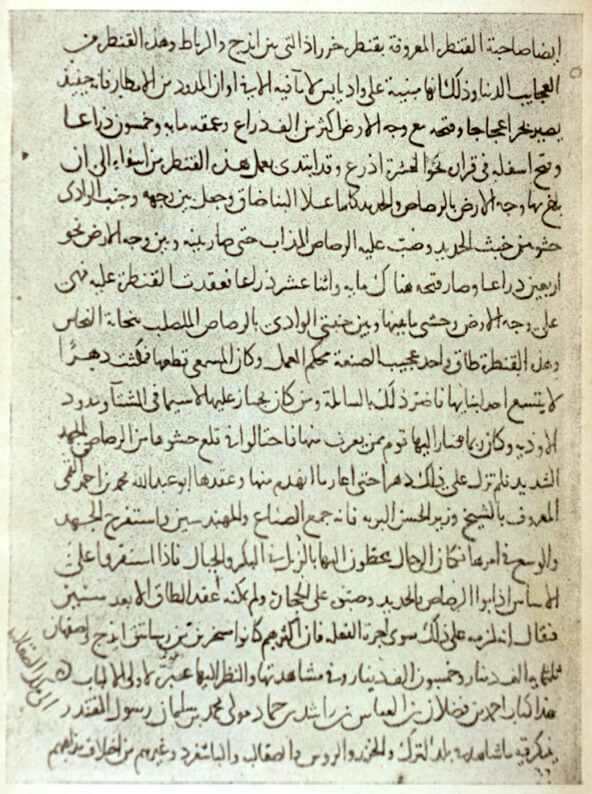 ايضا صاحبة القنطرة المعروفة بقنطرة خرراذ التي بين ايذج والرباط وهذه القنطرة من
العجايب الدنيا وذلك انها مبنية على واد يابس لا ماء فيه الا في اوان المدود من الامطار فانه حينئذ
يصير بحرا عجاجا وفتحه مع وجه الارض اكثر من الف ذراع وعمقه مايه وخمسون ذراعا
وفتح اسفله في قراره نحو العشرة اذرع وقد ابتدى بعمل هذه القنطرة من اسفلها الى ان
بلغ بها وجه الارض بالرصاص والحديد كلما علا البنا ضاق وجعل بين وجهه وجنب الوادي
حشو من خبث الحديد وصب عليه الرصاص المذاب حتى صار بينه وبين وجه الارض نحو
اربعين ذراعا وصار فتحه هناك مايه واثنا عشر ذراعا فعقدت القنطرة عليه فهي
على وجه الارض وحشي ما بينها وبين جنبتي الوادي بالرصاص المصلب بنحاتة النحاس
وهذه القنطرة طاق واحد عجيب الصنعة محكم العمل وكان المسمعي قطعها فمكثت دهرا
لا يتسع احد لبنائها فاضر ذلك بالسابلة ومن كان يجتاز عليها لا سيما في الشتاء ومدود
الاودية وكان ربما صار اليها قوم ممن يقرب منها فاحتالوا في قلع حشوها من الرصاص بالجهد
الشديد فلم تزل على ذلك دهرا حتى اعاد ما انهدم منها وعقدها ابو عبدالله محمد بن احمد القمي
المعروف بالشيخ وزير الحسن البويه فانه جمع الصناع والمهندسين واستفرغ الجهد
والوسع في امرها فكان الرجال يحطون اليها بالزبل في البكر والحبال فاذا استقروا على
الاساس اذابوا الرصاص بالحديد وصبوه على الحجارة ولم يمكنه عقد الطاق الا بعد سنين
فيقال انه لزمه على ذلك سوى اجرة الفعلة فان اكثرهم كانوا مسخرين من رساتيق ايذج واصفهان
ثلثمائة الف دينار وخمسون الف دينار وفي مشاهدتها والنظر اليها عبرة لاولي الالباب
هذا كتاب احمد بن فضلان بن العباس بن راشد بن حماد مولى محمد بن سلمان رسول المقتدر
الى ملك الصقالبة
يذكر فيه ما شاهد في بلد الترك والخزر والروس والصقالبة والباشغرد وغيرهم من اختلاف مذاهبهم